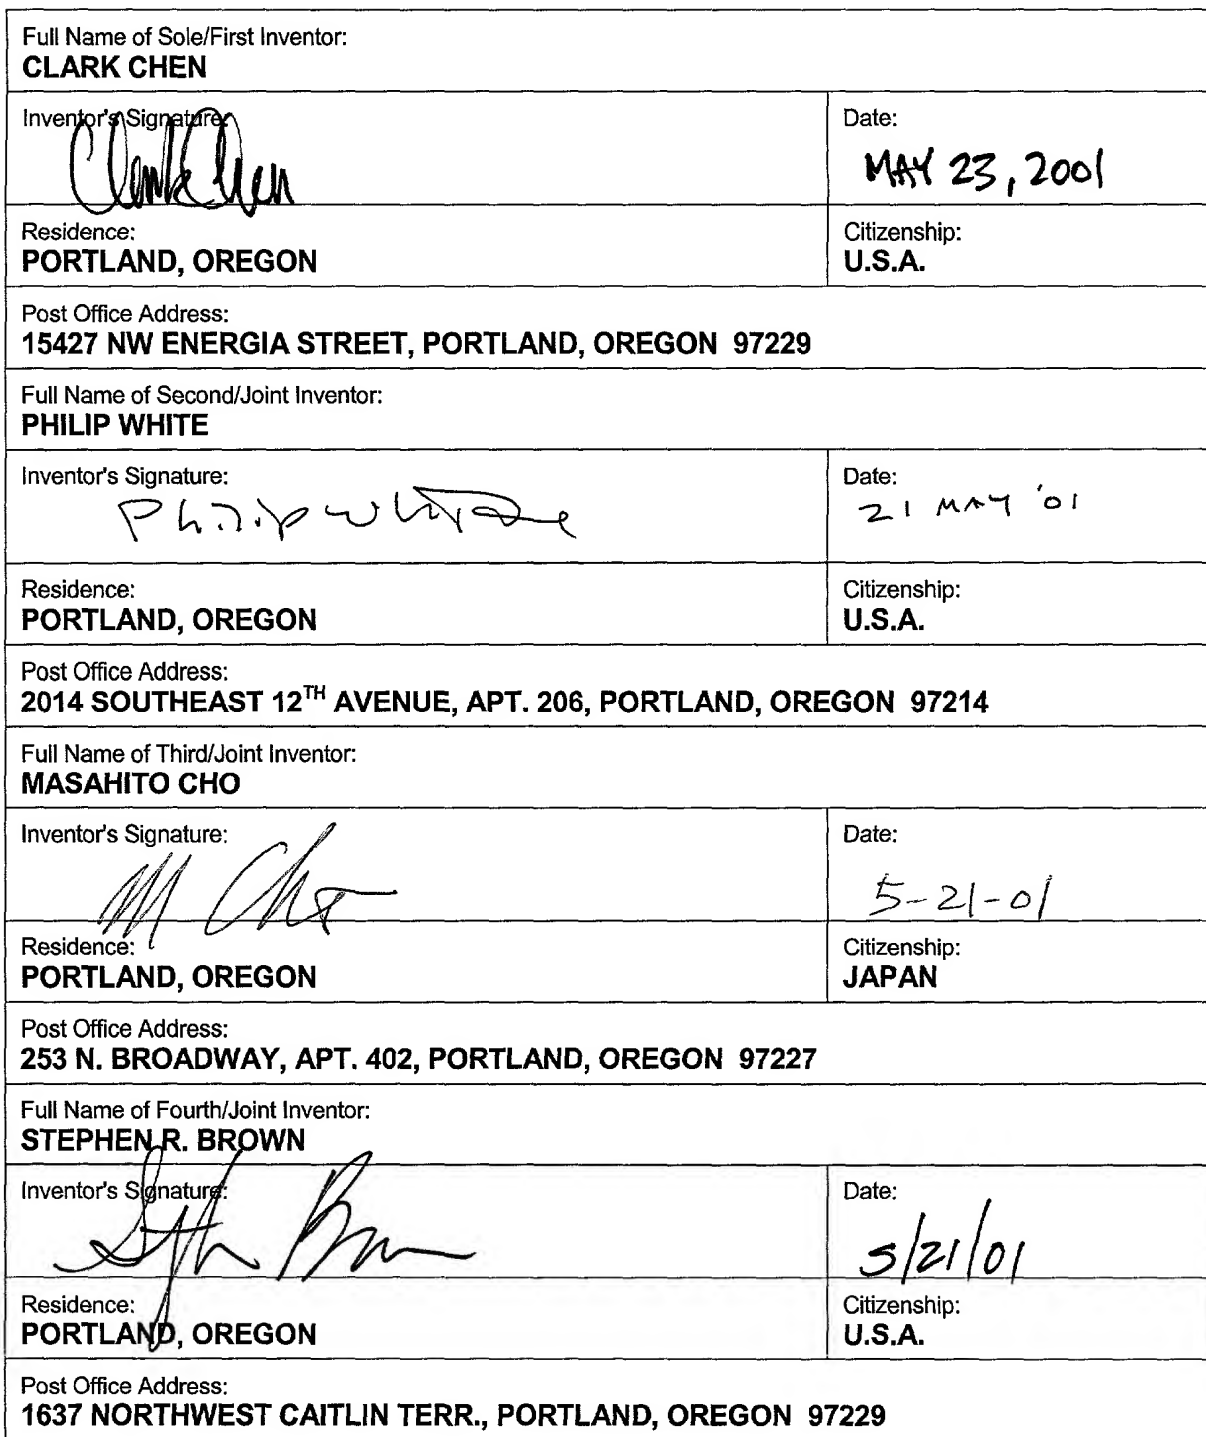 Full Name of Sole/First Inventor:
CLARK CHEN
Inventor's Signature:
Clark Chen
Date:
MAY 23, 2001
Residence:
PORTLAND, OREGON
Citizenship:
U.S.A.
Post Office Address:
15427 NW ENERGIA STREET, PORTLAND, OREGON 97229
Full Name of Second/Joint Inventor:
PHILIP WHITE
Inventor's Signature:
Philip White
Date:
21 MAY '01
Residence:
PORTLAND, OREGON
Citizenship:
U.S.A.
Post Office Address:
2014 SOUTHEAST 12TH AVENUE, APT. 206, PORTLAND, OREGON 97214
Full Name of Third/Joint Inventor:
MASAHITO CHO
Inventor's Signature:
M Cho
Date:
5-21-01
Residence:
PORTLAND, OREGON
Citizenship:
JAPAN
Post Office Address:
253 N. BROADWAY, APT. 402, PORTLAND, OREGON 97227
Full Name of Fourth/Joint Inventor:
STEPHEN R. BROWN
Inventor's Signature:
Date:
5/21/01
Residence:
PORTLAND, OREGON
Citizenship:
U.S.A.
Post Office Address:
1637 NORTHWEST CAITLIN TERR., PORTLAND, OREGON 97229